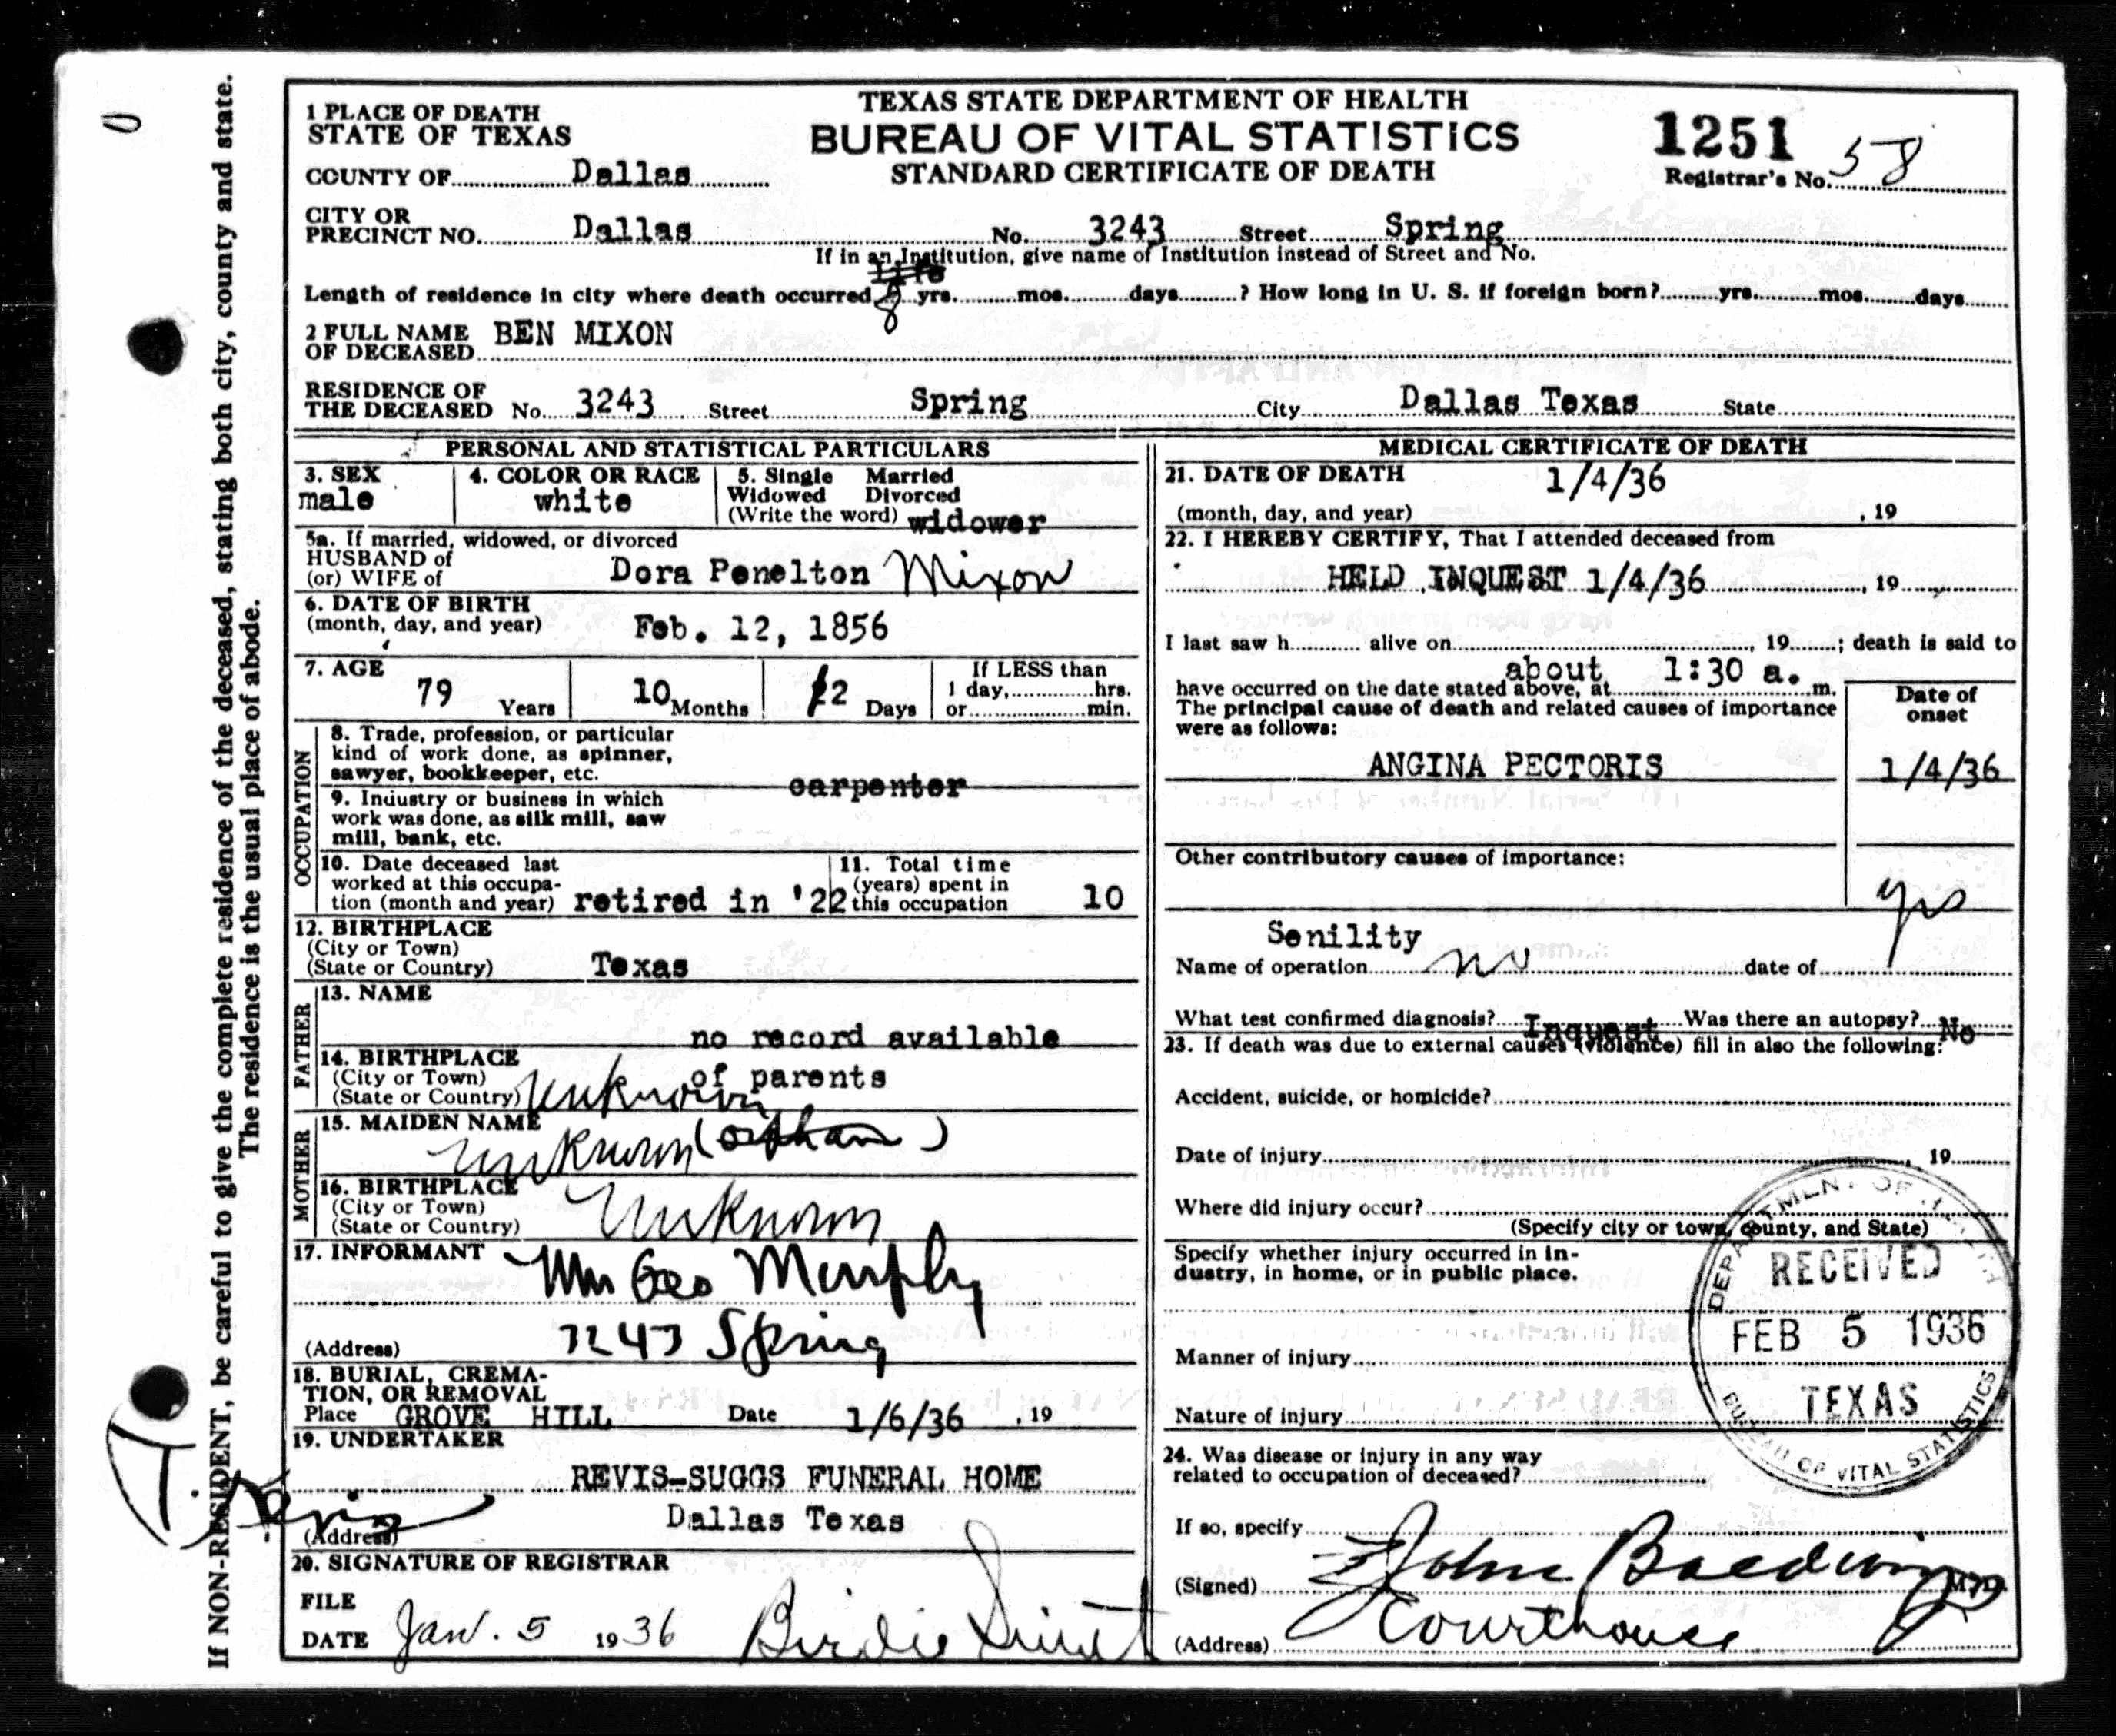 If NON-RESIDENT, be careful to give the complete residence of the deceased, stating both city, county and state.
The residence is the usual place of abode.
1 PLACE OF DEATH
STATE OF TEXAS
COUNTY OF Dallas
TEXAS STATE DEPARTMENT OF HEALTH
BUREAU OF VITAL STATISTICS
STANDARD CERTIFICATE OF DEATH
1251
Registrar's No. 58
CITY OR
PRECINCT NO. Dallas No. 3243 Street Spring
If in an Institution, give name of Institution instead of Street and No.
Length of residence in city where death occurred 8 yrs. mos. days ? How long in U. S. if foreign born? yrs. mos. days
2 FULL NAME
OF DECEASED BEN MIXON
RESIDENCE OF
THE DECEASED No. 3243 Street Spring City Dallas Texas State
PERSONAL AND STATISTICAL PARTICULARS
3. SEX
male
4. COLOR OR RACE
white
5. Single Married
Widowed Divorced
(Write the word) widower
5a. If married, widowed, or divorced
HUSBAND of
(or) WIFE of Dora Penelton Mixon
6. DATE OF BIRTH
(month, day, and year) Feb. 12, 1856
7. AGE
79 Years 10 Months 22 Days
If LESS than
1 day, hrs.
or min.
OCCUPATION
8. Trade, profession, or particular
kind of work done, as spinner,
sawyer, bookkeeper, etc. carpenter
9. Industry or business in which
work was done, as silk mill, saw
mill, bank, etc.
10. Date deceased last
worked at this occupa-
tion (month and year) retired in '22
11. Total time
(years) spent in
this occupation 10
12. BIRTHPLACE
(City or Town)
(State or Country) Texas
FATHER
13. NAME
no record available
14. BIRTHPLACE
(City or Town) of parents
(State or Country) Unknown
MOTHER
15. MAIDEN NAME
unknown (orphan)
16. BIRTHPLACE
(City or Town)
(State or Country) Unknown
17. INFORMANT Geo Murphy
(Address) 3243 Spring
18. BURIAL, CREMA-
TION, OR REMOVAL
Place GROVE HILL Date 1/6/36 , 19
19. UNDERTAKER
REVIS-SUGGS FUNERAL HOME
(Address) Dallas Texas
20. SIGNATURE OF REGISTRAR
FILE
DATE Jan. 5 1936 Birdie
MEDICAL CERTIFICATE OF DEATH
21. DATE OF DEATH 1/4/36
(month, day, and year) , 19
22. I HEREBY CERTIFY, That I attended deceased from
HELD INQUEST 1/4/36 , 19
I last saw h alive on , 19 ; death is said to
about 1:30 a.
have occurred on the date stated above, at m.
The principal cause of death and related causes of importance
were as follows:
Date of
onset
ANGINA PECTORIS 1/4/36
Other contributory causes of importance:
yrs
Senility
Name of operation no date of
What test confirmed diagnosis? Inquest Was there an autopsy? No
23. If death was due to external causes (violence) fill in also the following:
Accident, suicide, or homicide?
Date of injury , 19
Where did injury occur?
(Specify city or town, county, and State)
Specify whether injury occurred in in-
dustry, in home, or in public place.
Manner of injury
Nature of injury
DEPARTMENT OF HEALTH
RECEIVED
FEB 5 1936
TEXAS
BUREAU OF VITAL STATISTICS
24. Was disease or injury in any way
related to occupation of deceased?
If so, specify
(Signed) John Baldwin
(Address) Courthouse